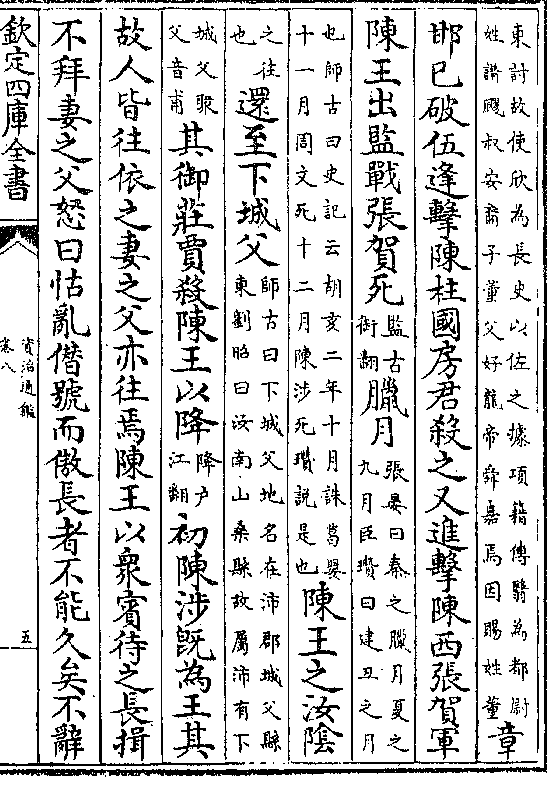 東討故使欣為長史以佐之據項籍傳翳為都尉
姓譜飂叔安裔子董父好龍帝舜嘉焉因賜姓董
章
邯已破伍逢擊陳柱國房君殺之又進擊陳西張賀軍
陳王出監戰張賀死
監古
銜翻
臘月
張晏曰秦之臘月夏之
九月臣瓚曰建丑之月
也師古曰史記云胡亥二年十月誅葛嬰
十一月周文死十二月陳涉死瓚說是也
陳王之汝陰
之往
也
還至下城父
師古曰下城父地名在沛郡城父縣
東劉昭曰汝南山桑縣故屬沛有下
城父聚
父音甫
其御莊賈殺陳王以降
降户
江翻
初陳涉既為王其
故人皆往依之妻之父亦往焉陳王以衆賓待之長揖
不拜妻之父怒曰怙亂僭號而傲長者不能久矣不辭
欽定四庫全書
資治通鑑
卷八
五